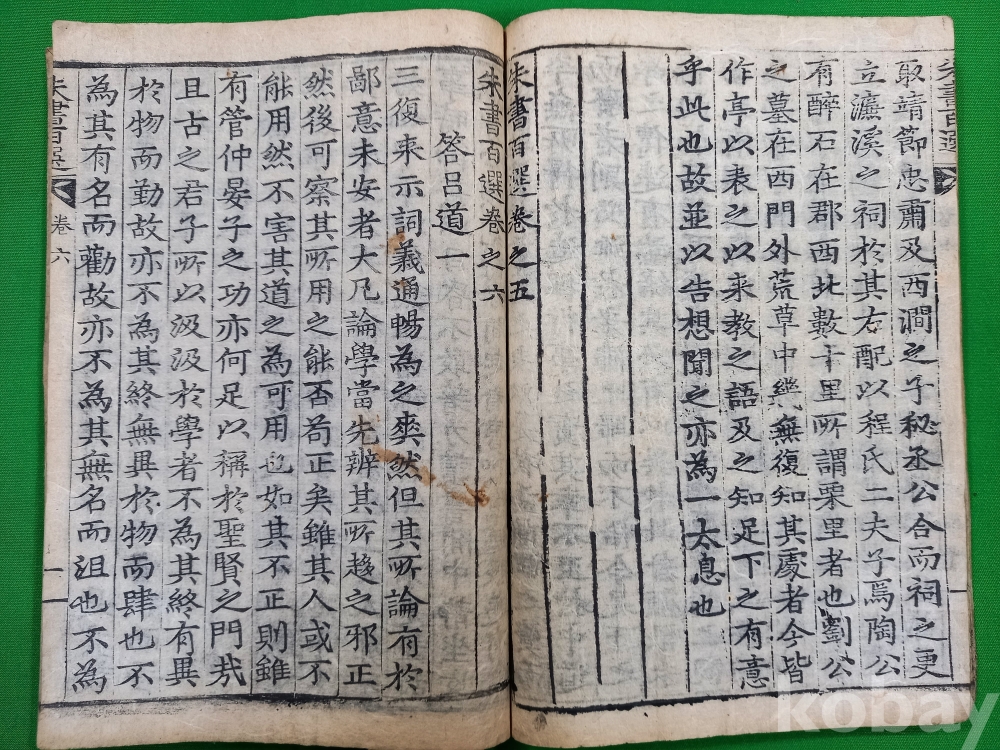 取靖節忠肅及西澗之子秘丞公合而祠之更
立濂溪之祠於其右配以程氏二夫子焉陶公
有醉石在郡西北數十里所謂栗里者也劉公
之墓在西門外荒草中幾無復知其處者今皆
作亭以表之以来教之語及之知足下之有意
乎此也故並以告想聞之亦為一太息也
朱書百選卷之五
朱書百選卷之六
答呂道一
三復来示詞義通暢為之爽然但其所論有於
鄙意未安者大凡論學當先辨其所趍之邪正
然後可察其所用之能否苟正矣雖其人或不
能用然不害其道之為可用也如其不正則雖
有管仲晏子之功亦何足以稱於聖賢之門㢤
且古之君子所以汲汲於學者不為其終有異
於物而勤故亦不為其終無異於物而肆也不
為其有名而勸故亦不為其無名而沮也不為
朱書百選
卷六
一
kobay